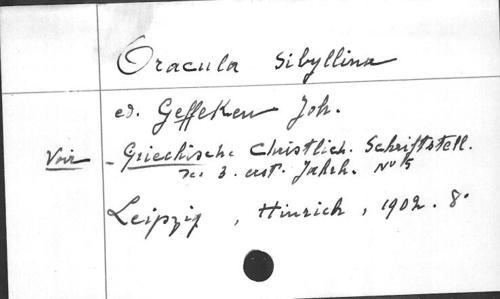 Oracula Sibyllina
ed. Geffcken Joh.
Voir - Griechische Christlich. Schriftstell.
3. erst. Jahrh. No
Leipzig, Hinrich, 1902. 8°